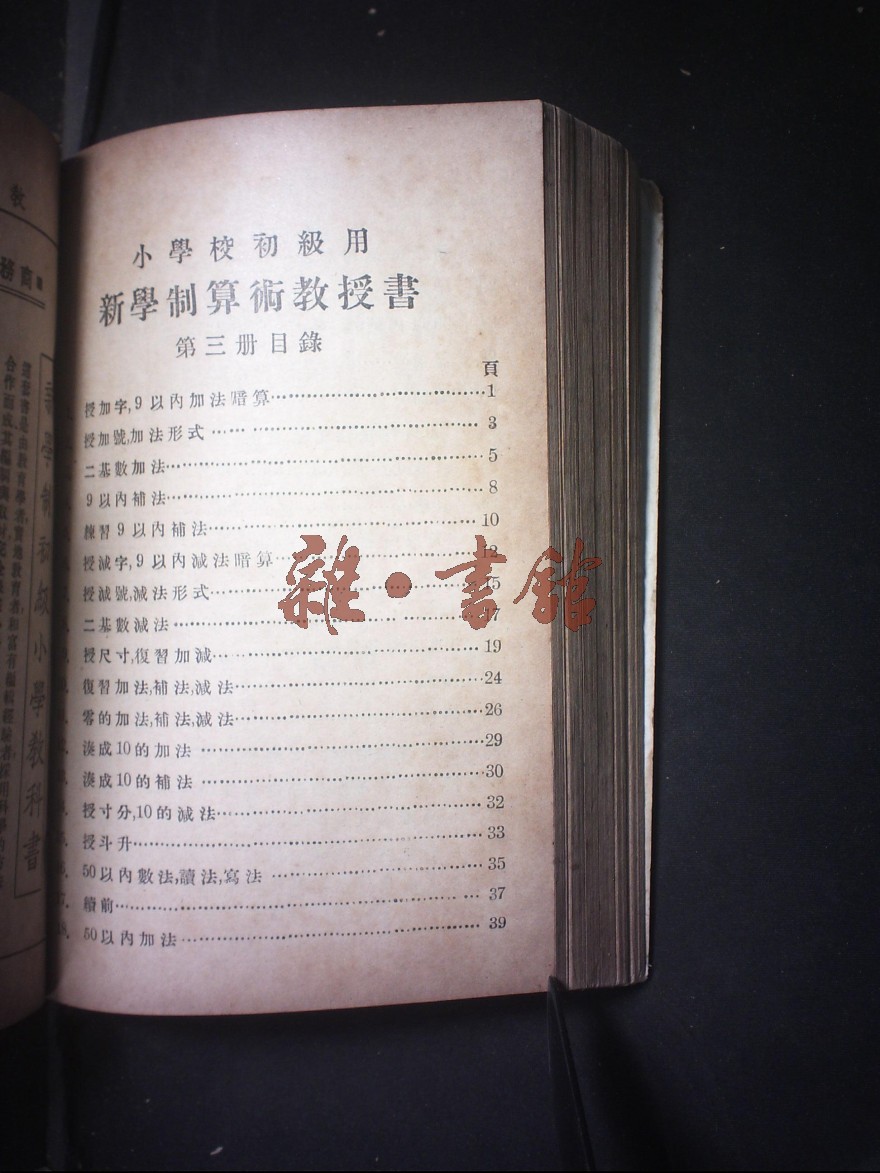 小學校初級用
新學制算術教授書
第三册目錄
頁
授加字,9以內加法暗算……1
授加號,加法形式……3
二基數加法……5
9以內補法……8
練習9以內補法……10
授減字,9以內減法暗算……12
授減號,減法形式……15
二基數減法……17
授尺寸,復習加減……19
復習加法,補法,減法……24
零的加法,補法,減法……26
湊成10的加法……29
湊成10的補法……30
授寸分,10的減法……32
授斗升……33
50以內數法,讀法,寫法……35
17.續前……37
18.50以內加法……39
雜·書館
教
商務
學制初級小學教科書